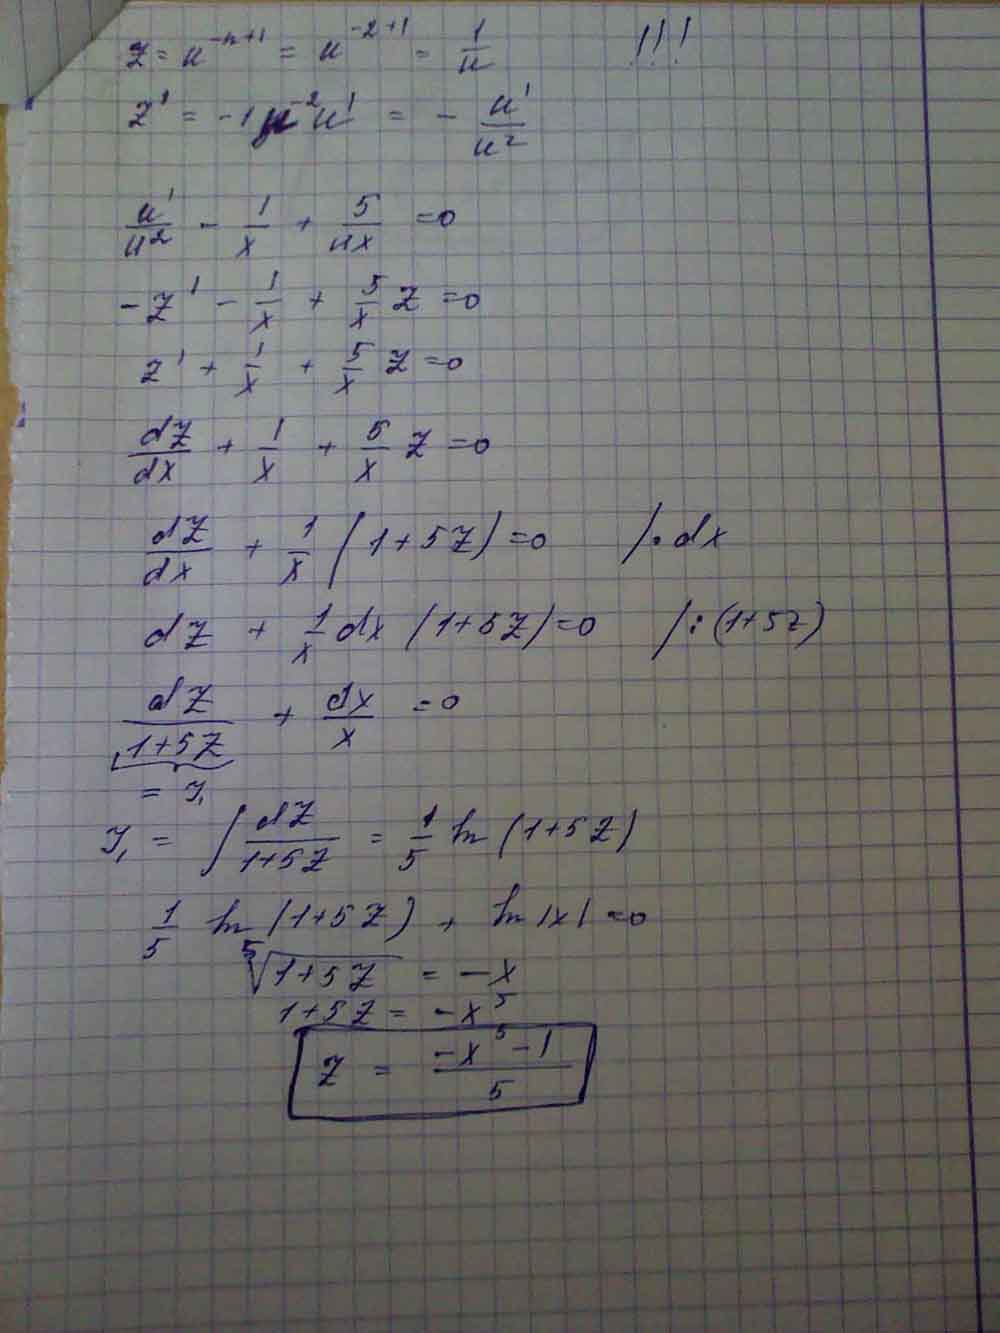 z = u^{-n+1} = u^{-2+1} = \frac{1}{u} !!!
z' = -1 u^{-2} u' = - \frac{u'}{u^2}
\frac{u'}{u^2} - \frac{1}{x} + \frac{5}{ux} = 0
-z' - \frac{1}{x} + \frac{5}{x} z = 0
z' + \frac{1}{x} + \frac{5}{x} z = 0
\frac{dz}{dx} + \frac{1}{x} + \frac{5}{x} z = 0
\frac{dz}{dx} + \frac{1}{x} (1+5z) = 0 /· dx
dz + \frac{1}{x} dx (1+5z) = 0 /: (1+5z)
\frac{dz}{1+5z} + \frac{dx}{x} = 0
= y_1
y_1 = \int \frac{dz}{1+5z} = \frac{1}{5} ln (1+5z)
\frac{1}{5} ln (1+5z) + ln |x| = 0
\sqrt[5]{1+5z} = -x
1+5z = -x^5
z = \frac{-x^5-1}{5}